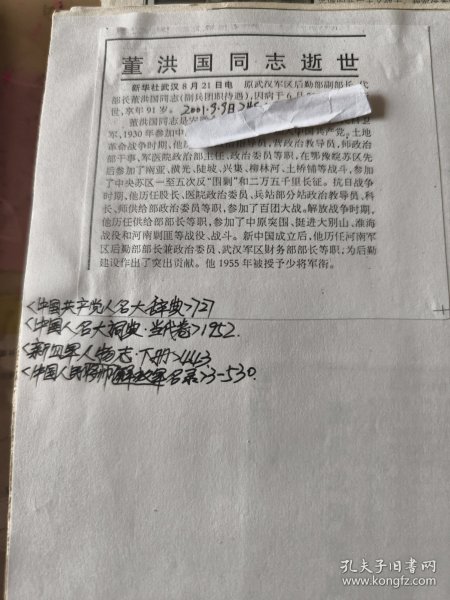 董洪国同志逝世
新华社武汉8月21日电 原武汉军区后勤部副部长、代
部长董洪国同志(副兵团职待遇),因病于6月
世,享年91岁。 2001.9.9日
董洪国同志是安徽
军,1930年参加中 中国共产党。土地
革命战争时期,他历 指导员、营政治教导员,师政治
部干事,军医院政治部主任、政治委员等职,在鄂豫皖苏区先
后参加了南亚、潢光、陡坡、兴集、柳林河、土桥铺等战斗,参加
了中央苏区一至五次反“围剿”和二万五千里长征。抗日战争
时期,他历任股长、医院政治委员、兵站部分站政治教导员、科
长、师供给部政治委员等职,参加了百团大战。解放战争时期,
他历任供给部部长等职,参加了中原突围、挺进大别山、淮海
战役和河南剿匪等战役、战斗。新中国成立后,他历任河南军
区后勤部部长兼政治委员、武汉军区财务部部长等职,为后勤
建设作出了突出贡献。他1955年被授予少将军衔。
<中国共产党人名大辞典>727
<中国人名大词典·当代卷>1952.
<新四军人物志·下册>443
<中国人民解放军 名录>3-530.
孔夫子旧书网
www.kongfz.com